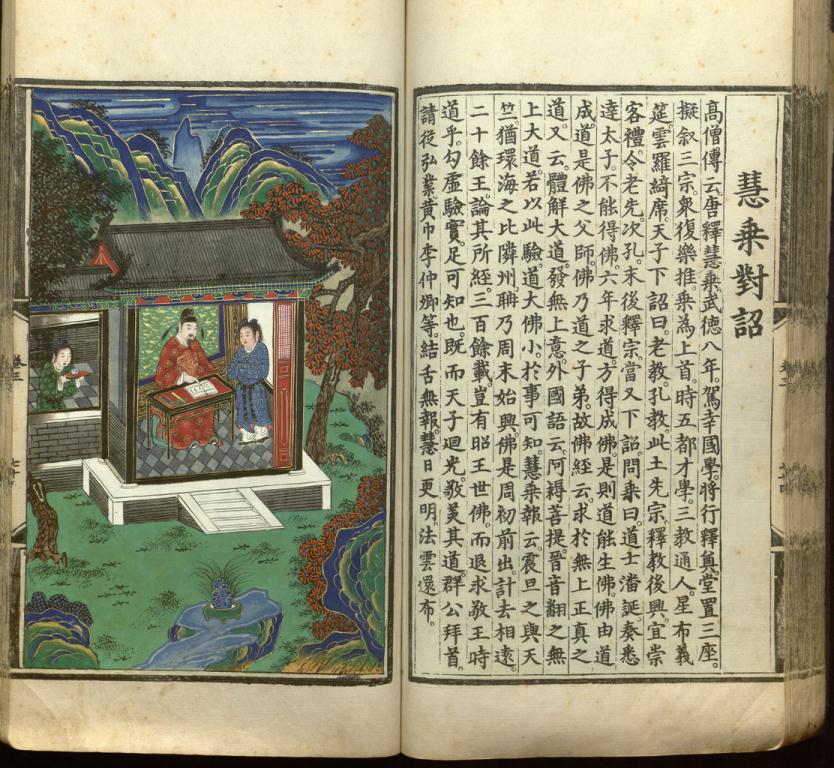 慧乘對詔
高僧傳云。唐釋慧乘。武德八年。駕幸國學。將行釋奠。堂置三座。
擬叙三宗。衆復樂推。乘為上首。時五都才學。三教通人。星布義
筵。雲羅綺席。天子下詔曰。老教孔教。此土先宗。釋教後興。宜崇
客禮。令老先次孔。末後釋宗。當又下詔。問乘曰。道士潘誕奏。悉
達太子。不能得佛。六年求道。方得成佛。是則道能生佛。佛由道
成。道是佛之父師。佛乃道之子弟。故佛經云。求於無上正真之
道。又云。體解大道。發無上意。外國語云。阿耨菩提。晉音翻之無
上大道。若以此驗。道大佛小。於事可知。慧乘報云。震旦之與天
竺。猶環海之比隣州。聃乃周末始興。佛是周初前出。計去相遠。
二十餘王。論其所經。三百餘載。豈有昭王世佛。而退求敬王時
道乎。勾虛驗實。足可知也。既而天子廻光。敬美其道。群公拜首。
請從弘業。黄巾李仲卿等。結舌無報。慧日更明。法雲還布。
卷三